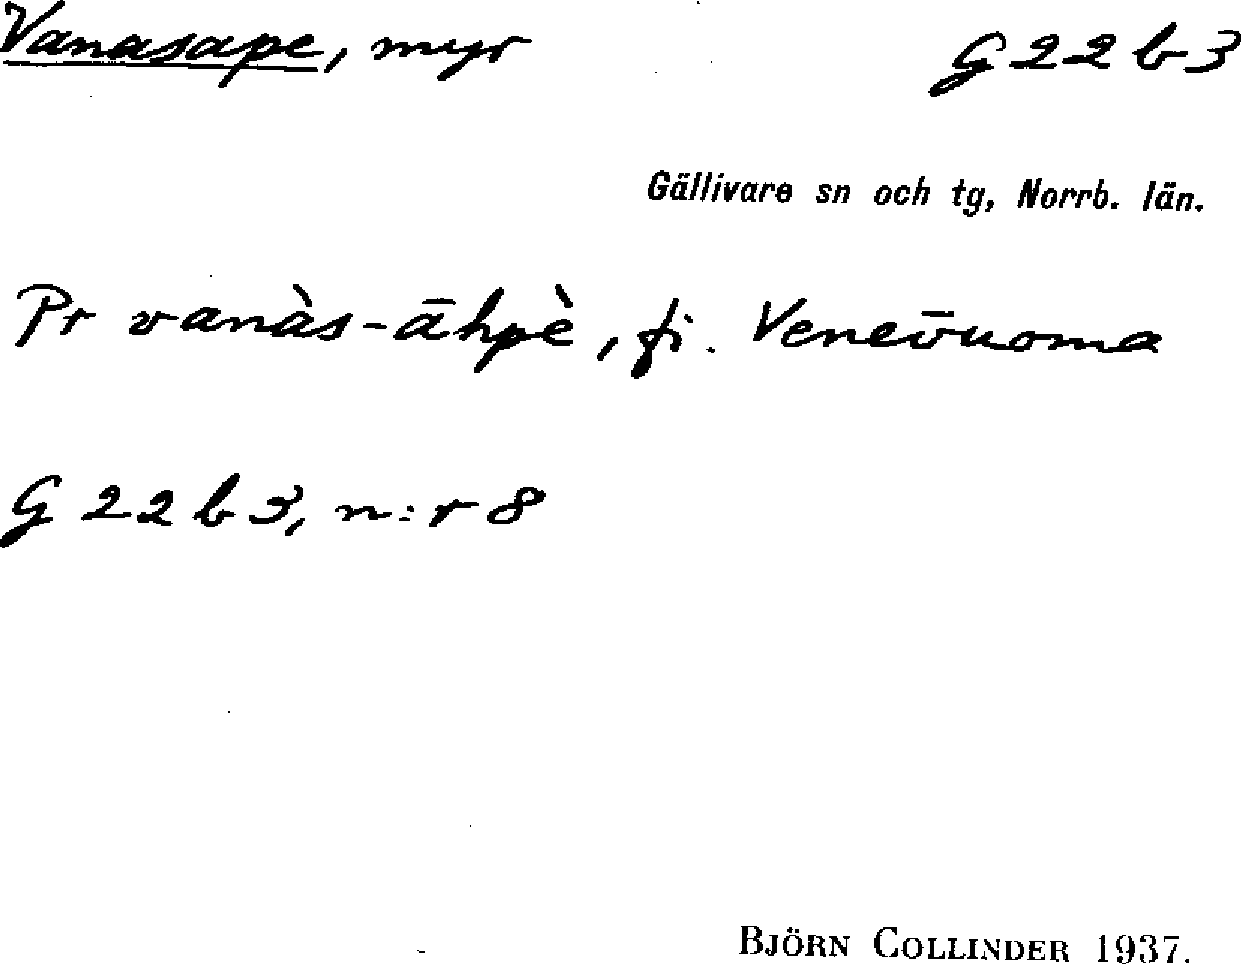 Vanasape, myr G22b3
Gällivare sn och tg, Norrb. län.
Pr vanàs-āhpè, fi. Venev̄uoma
G 22 b 3, n:r 8
BJÖRN COLLINDER 1937.